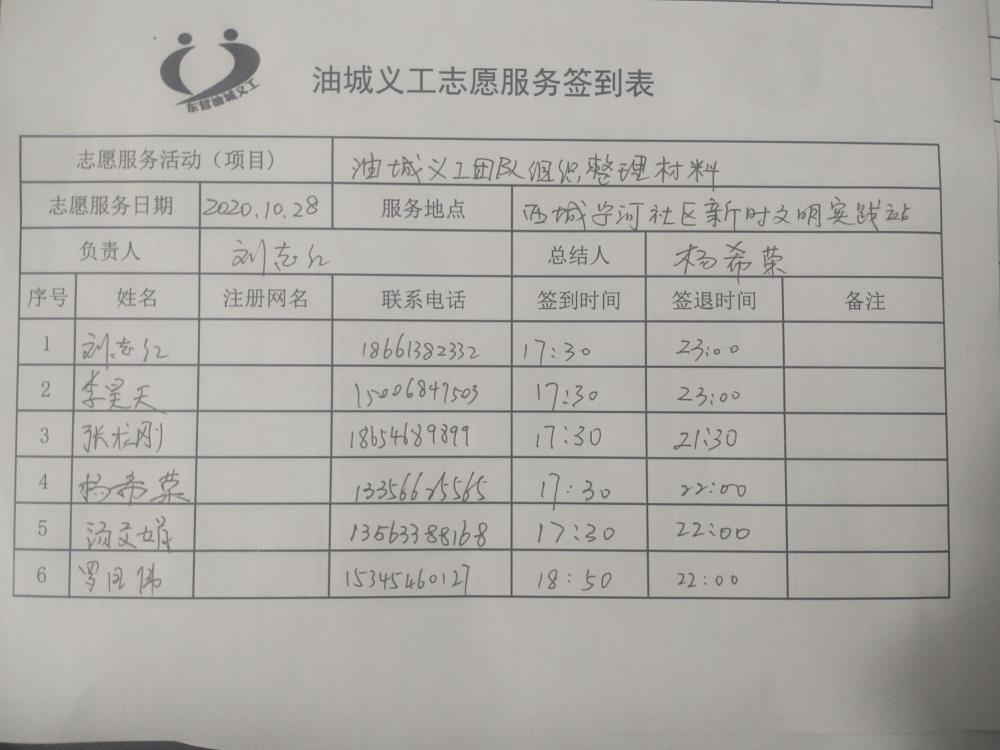 东营油城义工
油城义工志愿服务签到表
志愿服务活动（项目） 油城义工团队组织整理材料
志愿服务日期 2020.10.28 服务地点 西城学河社区新时文明实践站
负责人 刘志红 总结人 杨希荣
序号 姓名 注册网名 联系电话 签到时间 签退时间 备注
1 刘志红 18661382332 17:30 23:00
2 李昊天 15006847503 17:30 23:00
3 张 刚 18654689899 17:30 21:30
4 杨希荣 13356625565 17:30 22:00
5 汤文娟 13563388168 17:30 22:00
6 罗 伟 15345460127 18:50 22:00